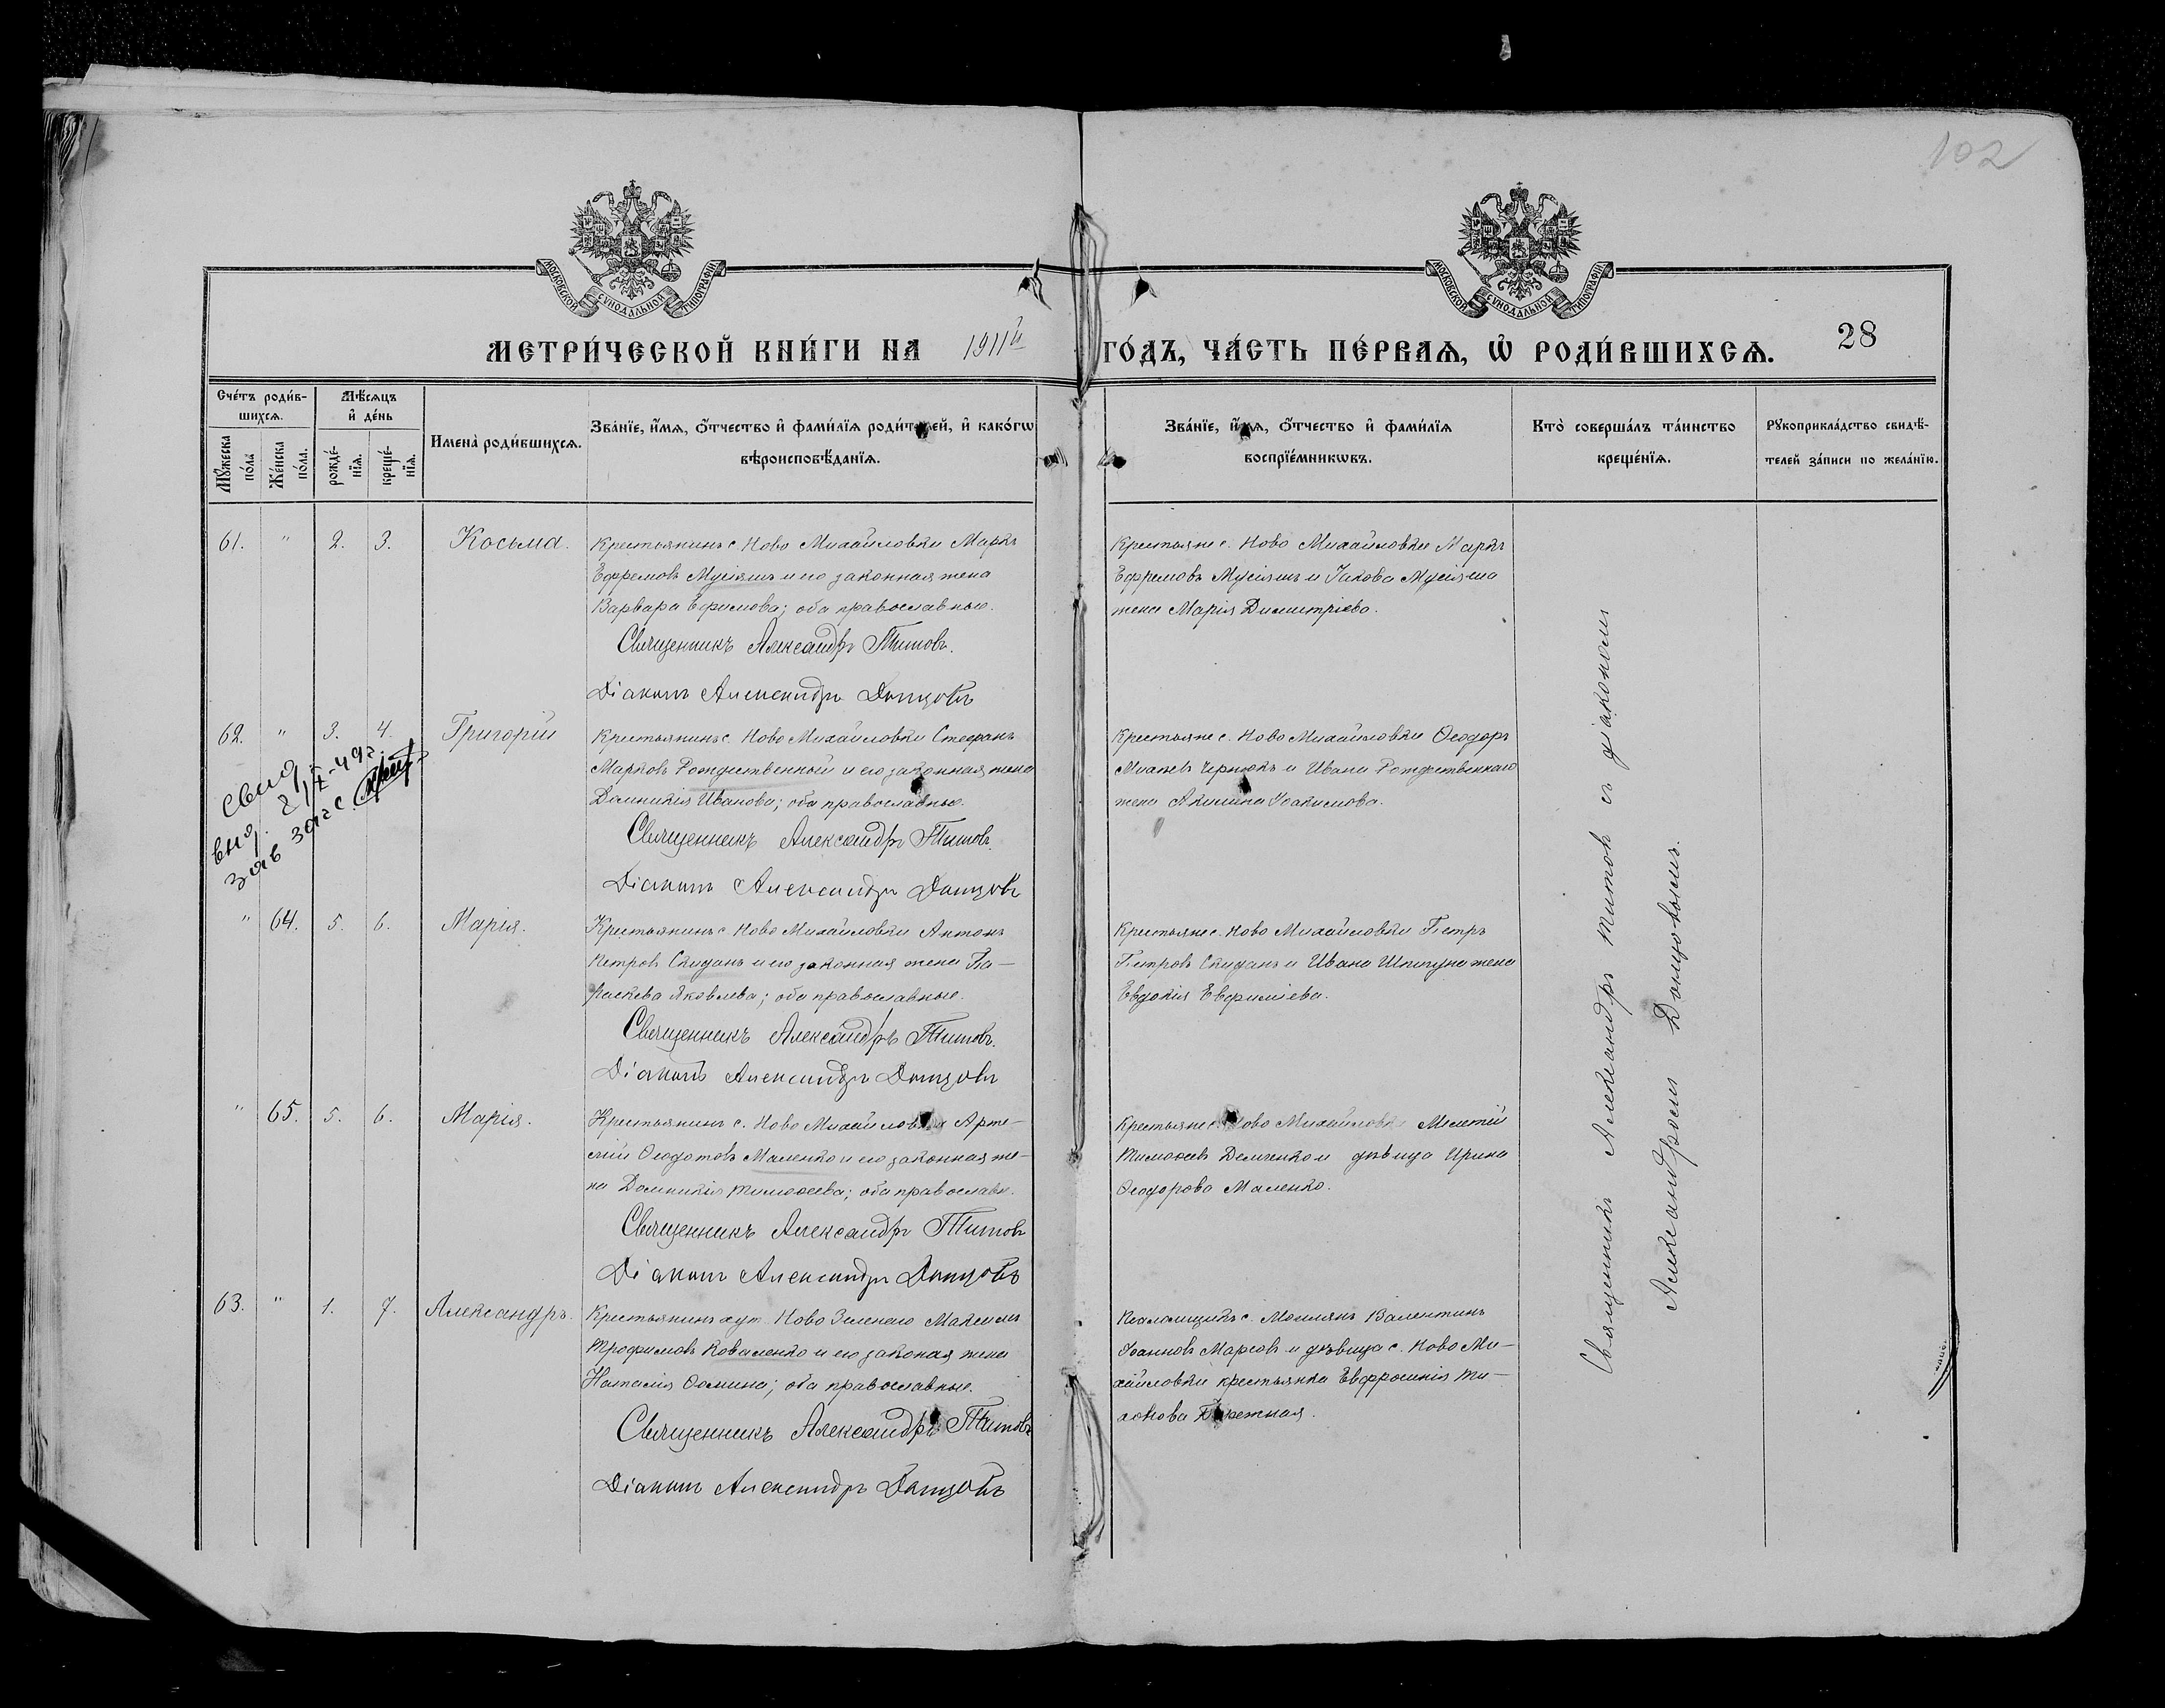 102
МОСКОВСКОЙ СѴНОДАЛЬНОЙ ТИПОГРАФІИ
МОСКОВСКОЙ СѴНОДАЛЬНОЙ ТИПОГРАФІИ
МЕТРИ́ЧЕСКОЙ КНИ́ГИ НА 1911й ГО́ДЪ, ЧА́СТЬ ПЕ́РВАѦ, Ѡ҆ РОДИ́ВШИХСѦ. 28
Сче́тъ роди́в-
шихсѧ.
Мꙋ́жеска по́ла
Же́нска по́ла.
Мѣ́сѧцъ
и҆ де́нь
рожде́-
нїѧ.
креще́-
нїѧ.
И҆мена̀ роди́вшихсѧ.
Зва́нїе, и҆́мѧ, ѻ҆́тчество и҆ фами́лїѧ роди́телей, и҆ како́гѡ
вѣроисповѣ́данїѧ.
Зва́нїе, и҆́мѧ, ѻ҆́тчество и҆ фами́лїѧ
воспрїе́мникѡвъ.
Кто̀ соверша́лъ та́инство
креще́нїѧ.
Рꙋкоприкла́дство свидѣ́-
телей за́писи по жела́нїю.
61. " 2. 3. Косьма.
Крестьянинъ с. Ново Михайловки Маркъ
Ефремовъ Мусіяшъ и его законная жена
Варвара Ефимова; оба православные.
Священникъ Александръ Титовъ.
Діаконъ Александръ Донцовъ
Крестьяне с. Ново Михайловки Маркъ
Ефремовъ Мусіяшъ и Іакова Мусіяша
жена Марія Димитріева.
62. " 3. 4. Григорій
свид
выд. 2/IX-49г.
зав загс
Крестьянинъ с. Ново Михайловки Стефанъ
Марковъ Рождественный и его законная жена
Домникія Иванова; оба православные.
Священникъ Александръ Титовъ.
Діаконъ Александръ Донцовъ
Крестьяне с. Ново Михайловки Ѳеодоръ
Чернюкъ и Ивана Рождественнаго
жена Акилина Іоакимова.
" 64. 5. 6. Марія.
Крестьянинъ с. Ново Михайловки Антонъ
Петровъ Скиданъ и его законная жена Па-
раскева Яковлева; оба православные.
Священникъ Александръ Титовъ.
Діаконъ Александръ Донцовъ
Крестьяне с. Ново Михайловки Петръ
Петровъ Скиданъ и Ивана Шпигуна жена
Евдокія Евфиміева.
" 65. 5. 6. Марія.
Крестьянинъ с. Ново Михайловки Арте-
мій Ѳеодотовъ Маленко и его законная же-
на Домникія Тимоѳеева; оба православн.
Священникъ Александръ Титовъ
Діаконъ Александръ Донцовъ
Крестьяне с. Ново Михайловки Мелетій
Тимоѳеевъ Демченко и дѣвица Ирина
Ѳеодорова Маленко.
63. " 1. 7. Александръ.
Крестьянинъ хут. Ново Зеленаго Максимъ
Трофимовъ Коваленко и его законая жена
Наталія Ѳомина; оба православные.
Священникъ Александръ Титовъ
Діаконъ Александръ Донцовъ
Псаломщикъ с. Валентинъ
Іоанновъ Марсовъ и дѣвица с. Ново Ми-
хайловки крестьянка Евфросинія Ти-
хонова
Священникъ Александръ Титовъ съ діакономъ
Александромъ Донцовымъ.